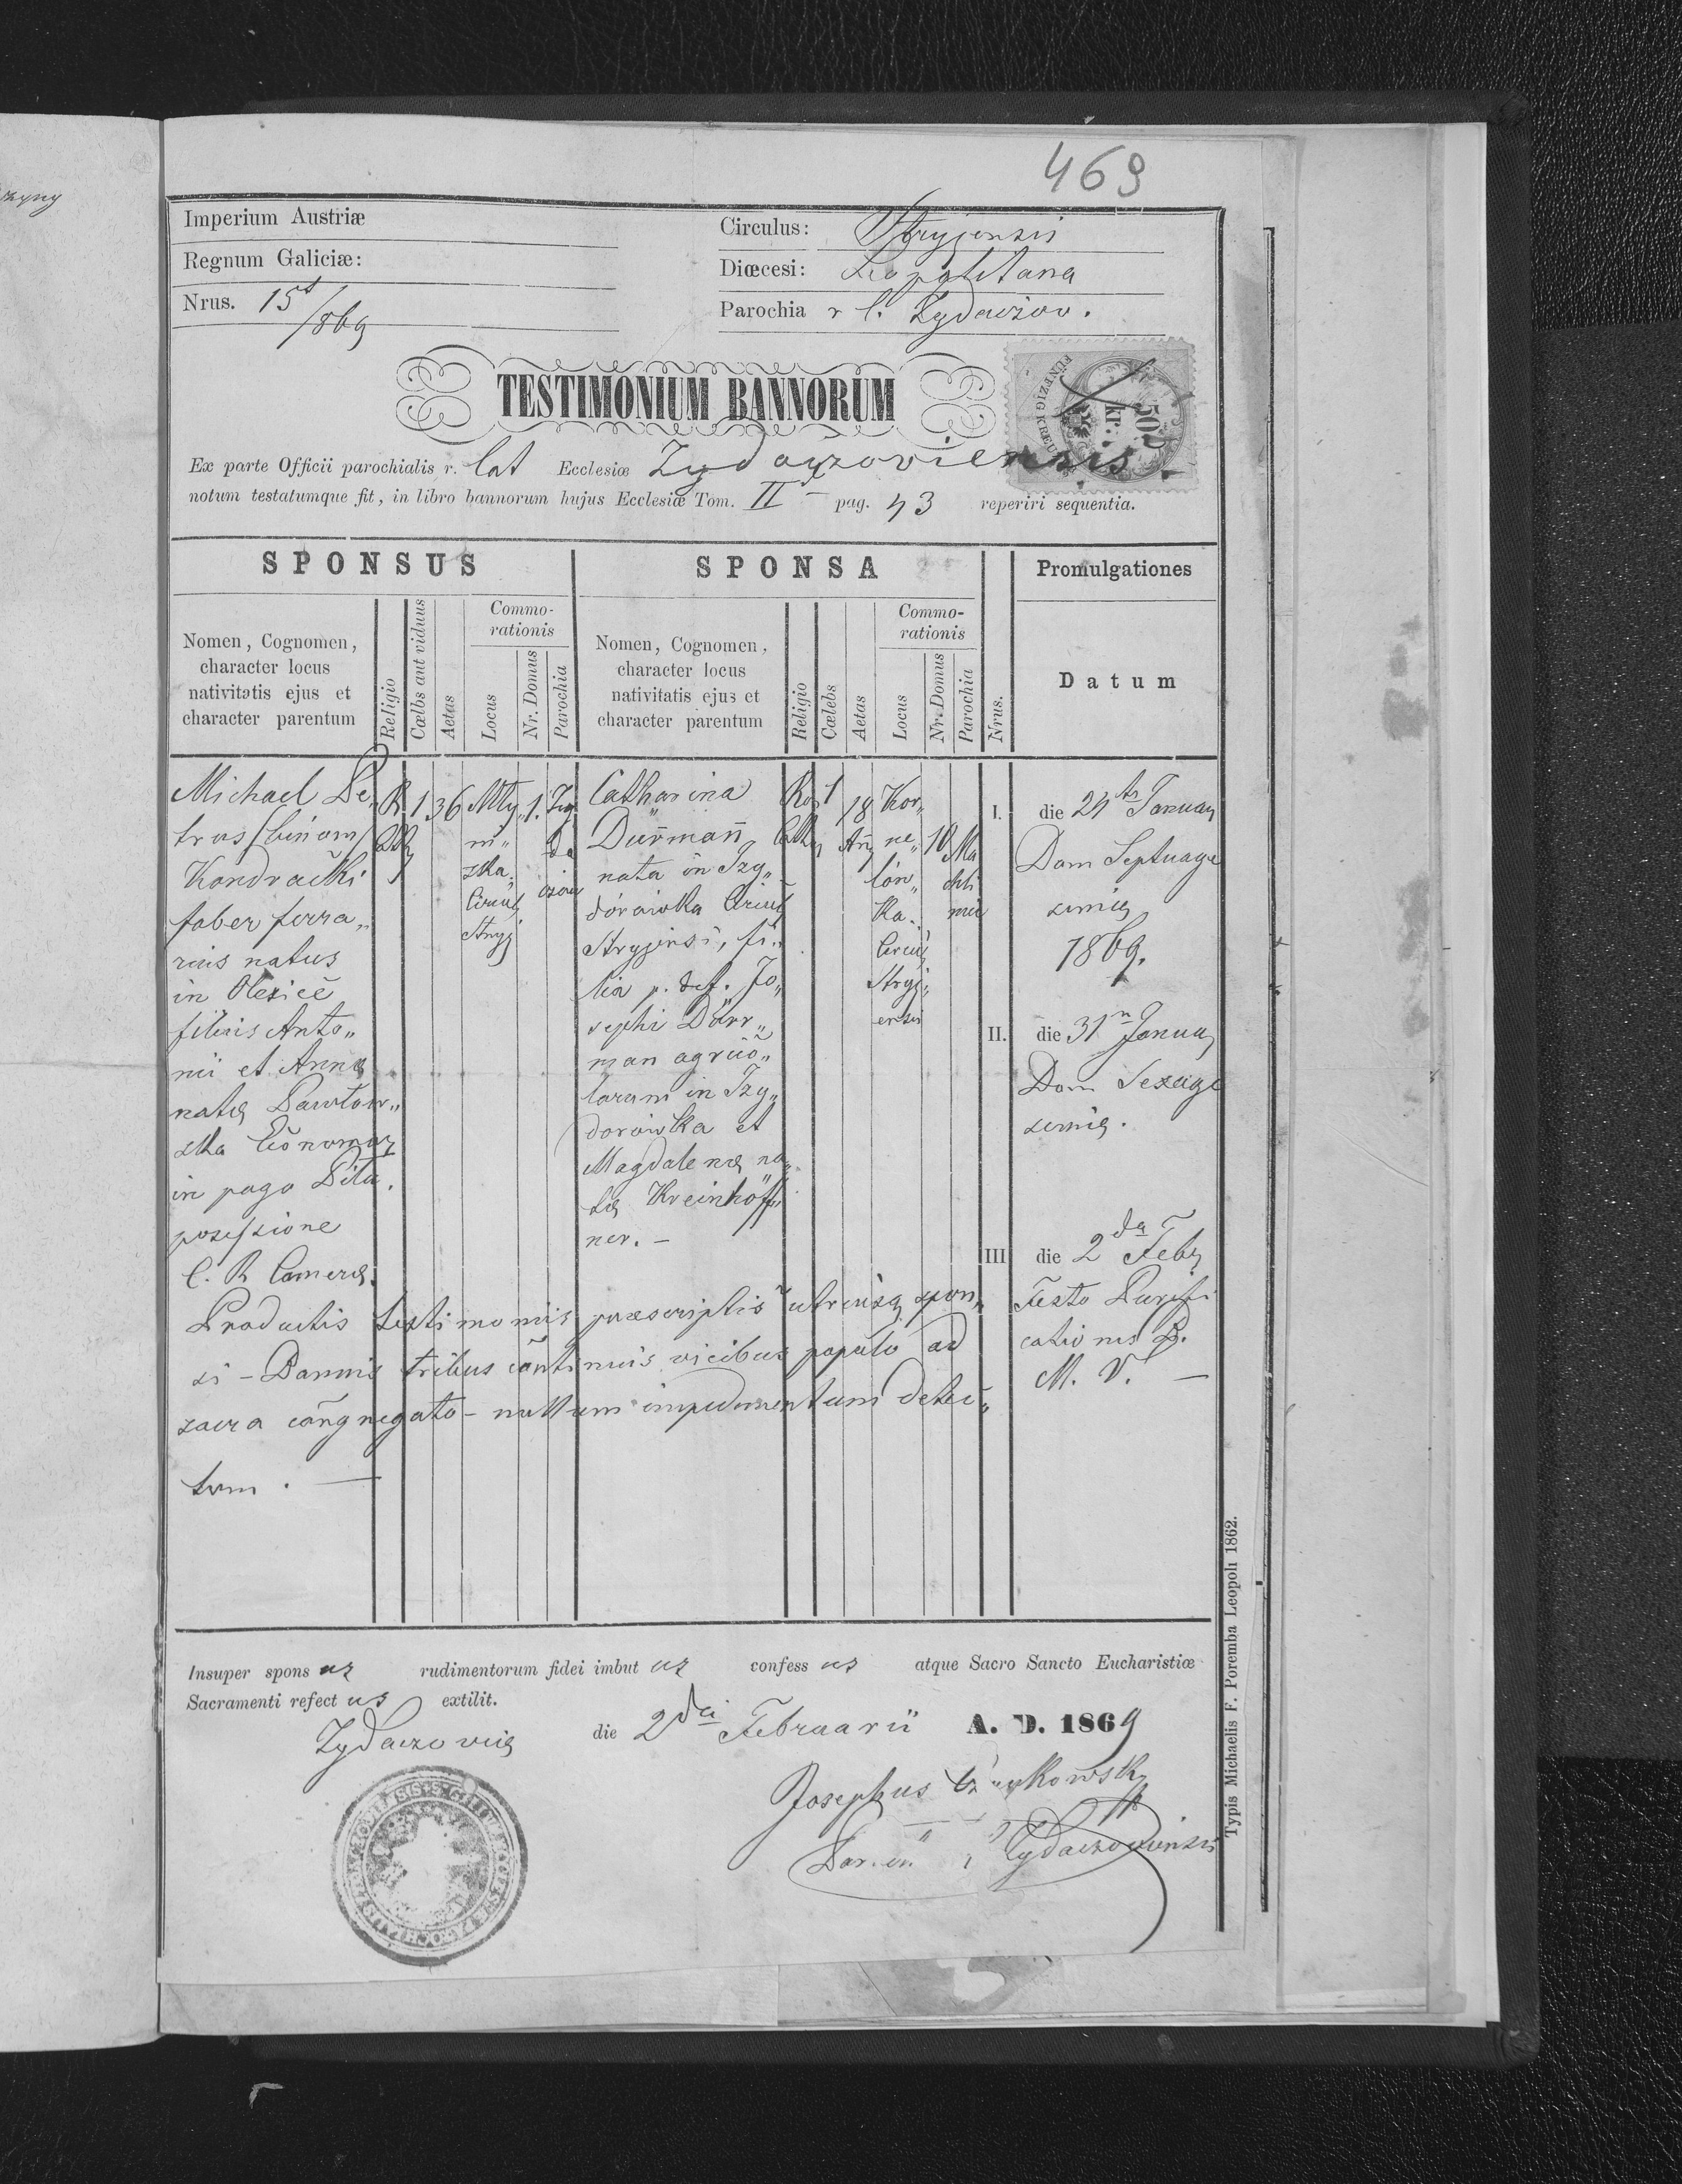 469
Imperium Austriæ
Circulus: Stryjensis
Regnum Galiciæ:
Diœcesi: Leopolitana
Nrus. 15/869
Parochia r l. Zydaczow.
TESTIMONIUM BANNORUM
50 kr.
FÜNFZIG KREU
Ex parte Officii parochialis r. lat Ecclesiæ Zydaczoviensis
notum testatumque fit, in libro bannorum hujus Ecclesiæ Tom. II pag. 43 reperiri sequentia.
SPONSUS
SPONSA
Promulgationes
Nomen, Cognomen,
character locus
nativitatis ejus et
character parentum
Religio
Cœlbs aut viduus
Aetas
Commo-
rationis
Locus
Nr. Domus
Parochia
Nomen, Cognomen,
character locus
nativitatis ejus et
character parentum
Religio
Cœlebs
Aetas
Commo-
rationis
Locus
Nr. Domus
Parochia
Nrus.
Datum
Michael Pe„
trus /binom/
Kondracki
faber ferra„
rius natus
in Olexice
filius Anto„
nii et Anna
nata Pawlow„
ska Economor
in pago Pila.
possessione
C. R Camera.
R
1
36
Mły„
n„
ska.
Circul
Stryj
1.
Zy
da
czow
Catharina
Durmann
nata in Izy„
dorowka Circul
Stryjensi, fi„
lia p. def. Jo„
sephi Dürr„
man agrico„
larum in Izy„
dorowka et
Magdalena na„
ta Kreinhöff
ner. –
Ro
Cath
1
18
An
Kor„
ne„
lów„
ka.
Circul
Stryj„
ensis
10
Ma
chli
niec
I. die 24 Januar
Dom Septuage
simæ
1869.
II. die 31 Januar
Dom Sexage
simæ.
III die 2da Febr
Festo Purifi
cationis B.
M. V. –
Productis testimoniis præscriptis utriusq spon„
si – Bannis tribus continuis vicibus populo ad
sacra congregato – nullum impedimentum detec„
tum. –
Insuper spons us rudimentorum fidei imbut us confess us atque Sacro Sancto Eucharistiæ
Sacramenti refect us extilit.
Zydaczoviæ die 2da Februarii A. D. 1869
Josephus
Zydaczoviensis
Typis Michaelis F. Poremba Leopoli 1862.